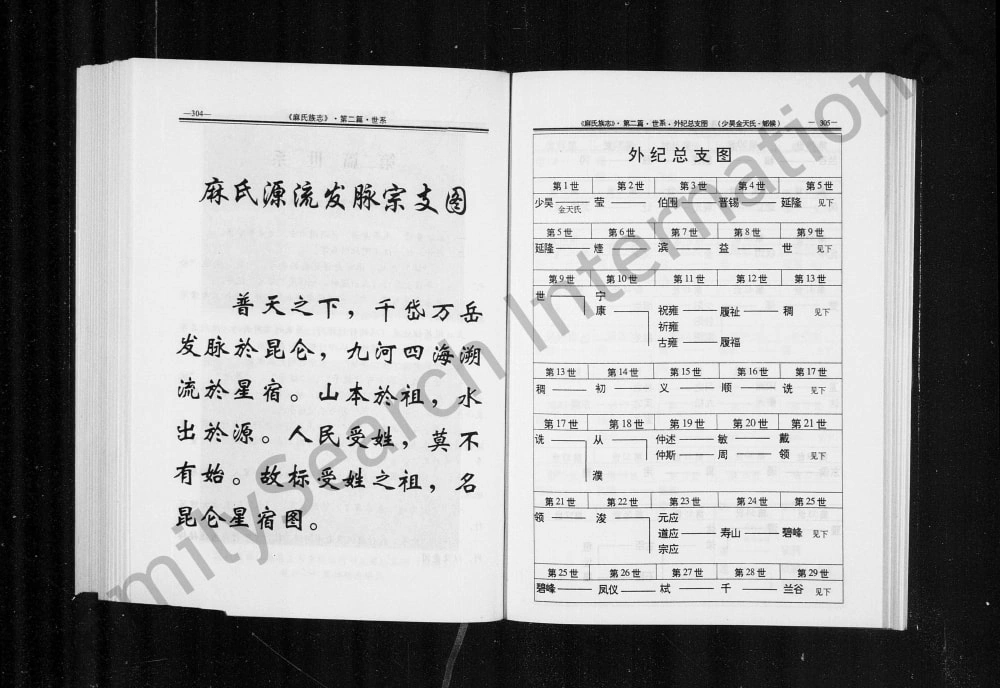 —304— 《麻氏族志》·第二篇·世系
麻氏源流发脉宗支图
普天之下，千岱万岳
发脉於昆仑，九河四海溯
流於星宿。山本於祖，水
出於源。人民受姓，莫不
有始。故标受姓之祖，名
昆仑星宿图。
《麻氏族志》·第二篇·世系·外纪总支图 （少昊金天氏-郇候） —305—
外纪总支图
第1世 第2世 第3世 第4世 第5世
少昊 金天氏 莹 伯囿 晋锡 延隆 见下
第5世 第6世 第7世 第8世 第9世
延隆 煙 滨 益 世 见下
第9世 第10世 第11世 第12世 第13世
世 宁
康 祝雍 履祉 稠 见下
祈雍
古雍 履福
第13世 第14世 第15世 第16世 第17世
稠 初 义 顺 诜 见下
第17世 第18世 第19世 第20世 第21世
诜 从 仲述 敏 戴
仲斯 周 领 见下
濮
第21世 第22世 第23世 第24世 第25世
领 浚 元应
道应 寿山 碧峰 见下
宗应
第25世 第26世 第27世 第28世 第29世
碧峰 凤仪 栻 千 兰谷 见下
mitySearch International